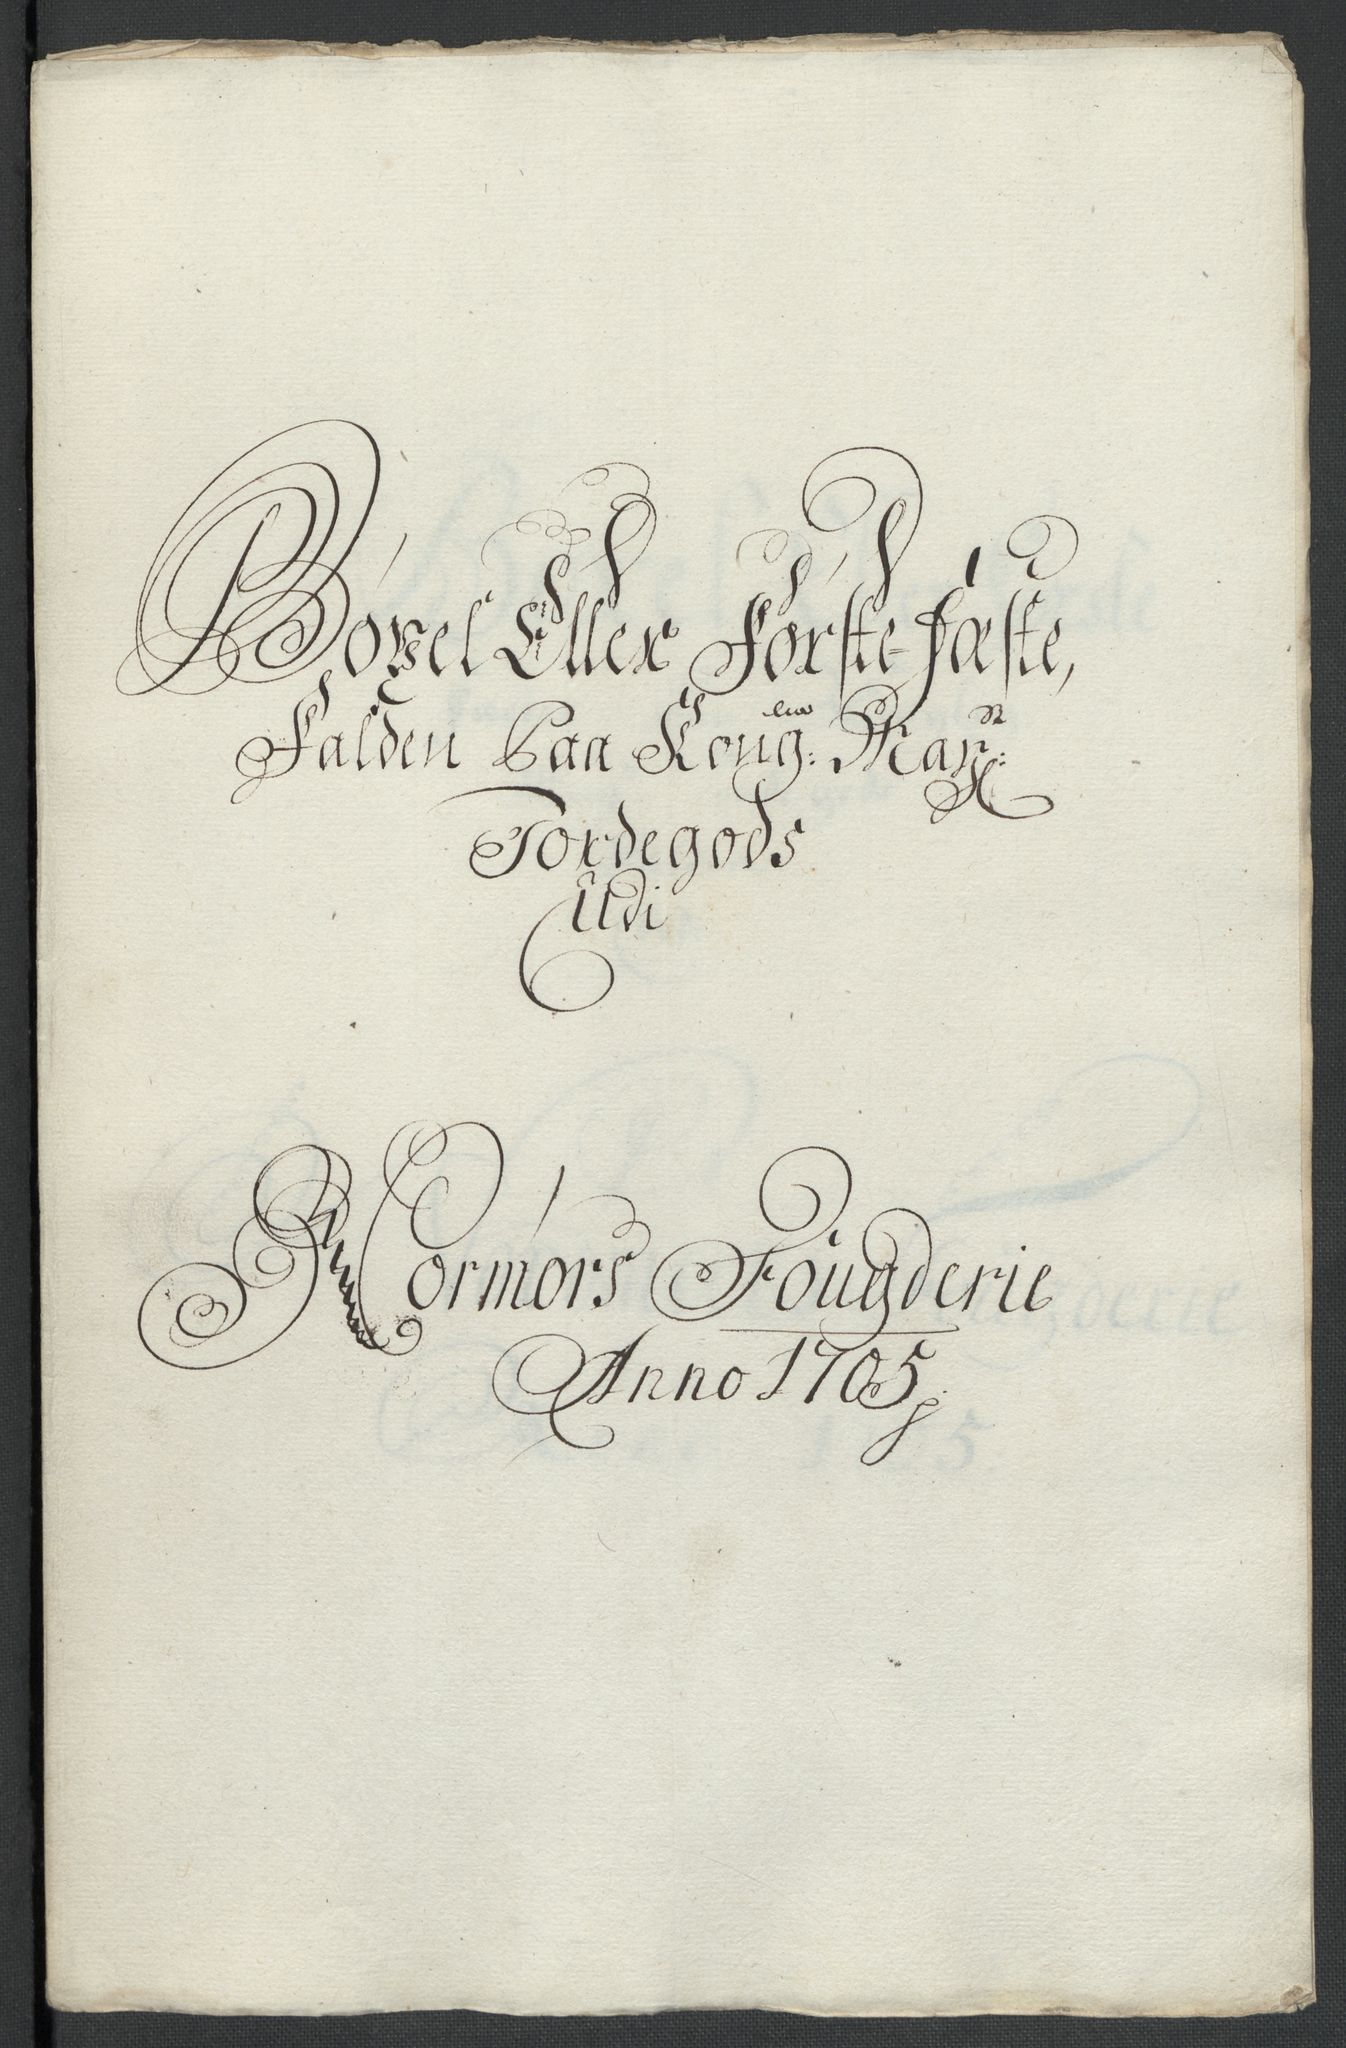 Böxel Eller Förste fæste,
Falden Paa Kong: Maÿ:
Jordegods
Udi
Normörs Fougderie
Anno 1705